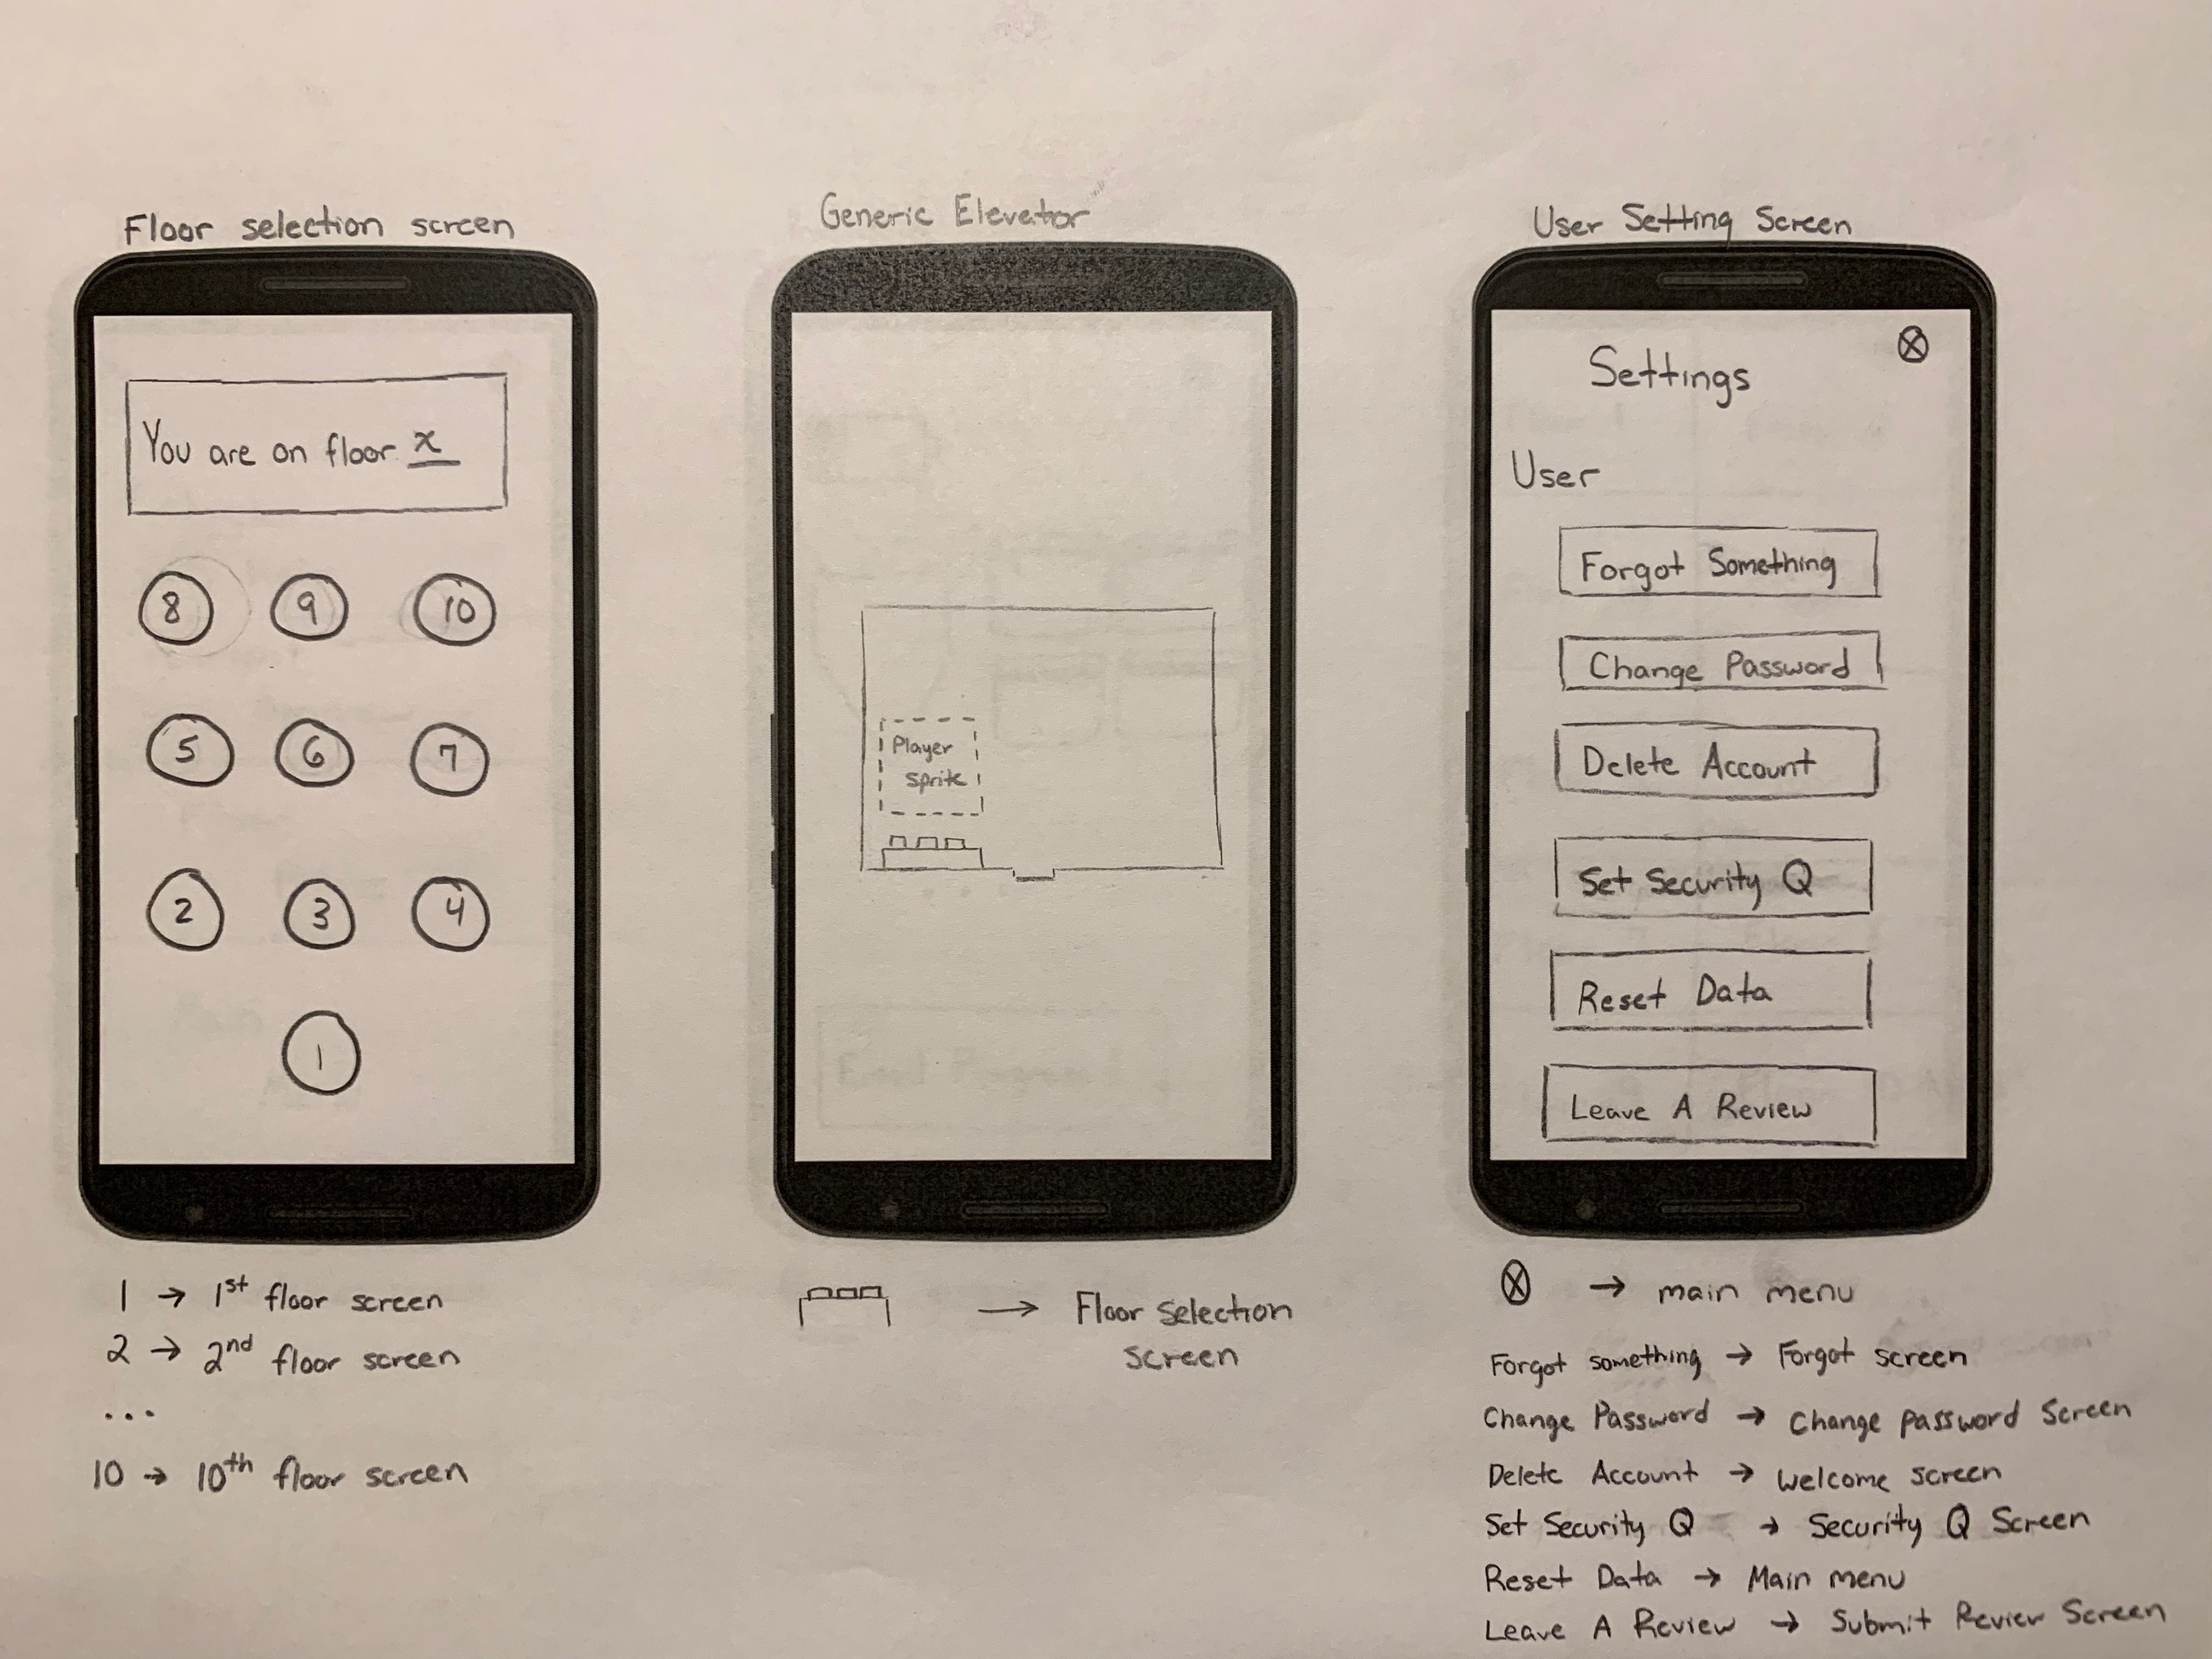 Floor selection screen
You are on floor x
8 9 10
5 6 7
2 3 4
1
1 → 1st floor screen
2 → 2nd floor screen
...
10 → 10th floor screen
Generic Elevator
Player
Sprite
→ Floor selection
screen
User Setting Screen
Settings
User
Forgot Something
Change Password
Delete Account
Set Security Q
Reset Data
Leave A Review
ⓧ → main menu
Forgot something → Forgot screen
Change Password → Change password Screen
Delete Account → Welcome screen
Set Security Q → Security Q Screen
Reset Data → Main menu
Leave A Review → Submit Review Screen